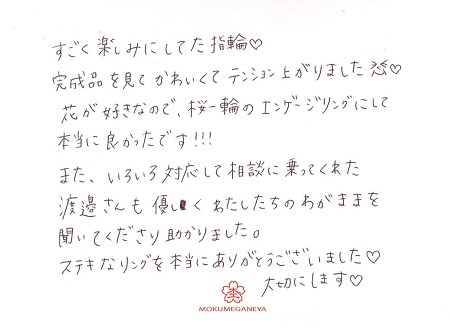 すごく楽しみにしてた指輪♡
完成品を見てかわいくてテンション上がりました♡
花が好きなので、桜一輪のエンゲージリングにして
本当に良かったです!!!
また、いろいろ対応して相談に乗ってくれた
渡邉さんも優しくわたしたちのわがままを
聞いてくださり助かりました。
ステキなリングを本当にありがとうございました♡
大切にします♡
MOKUMEGANEYA